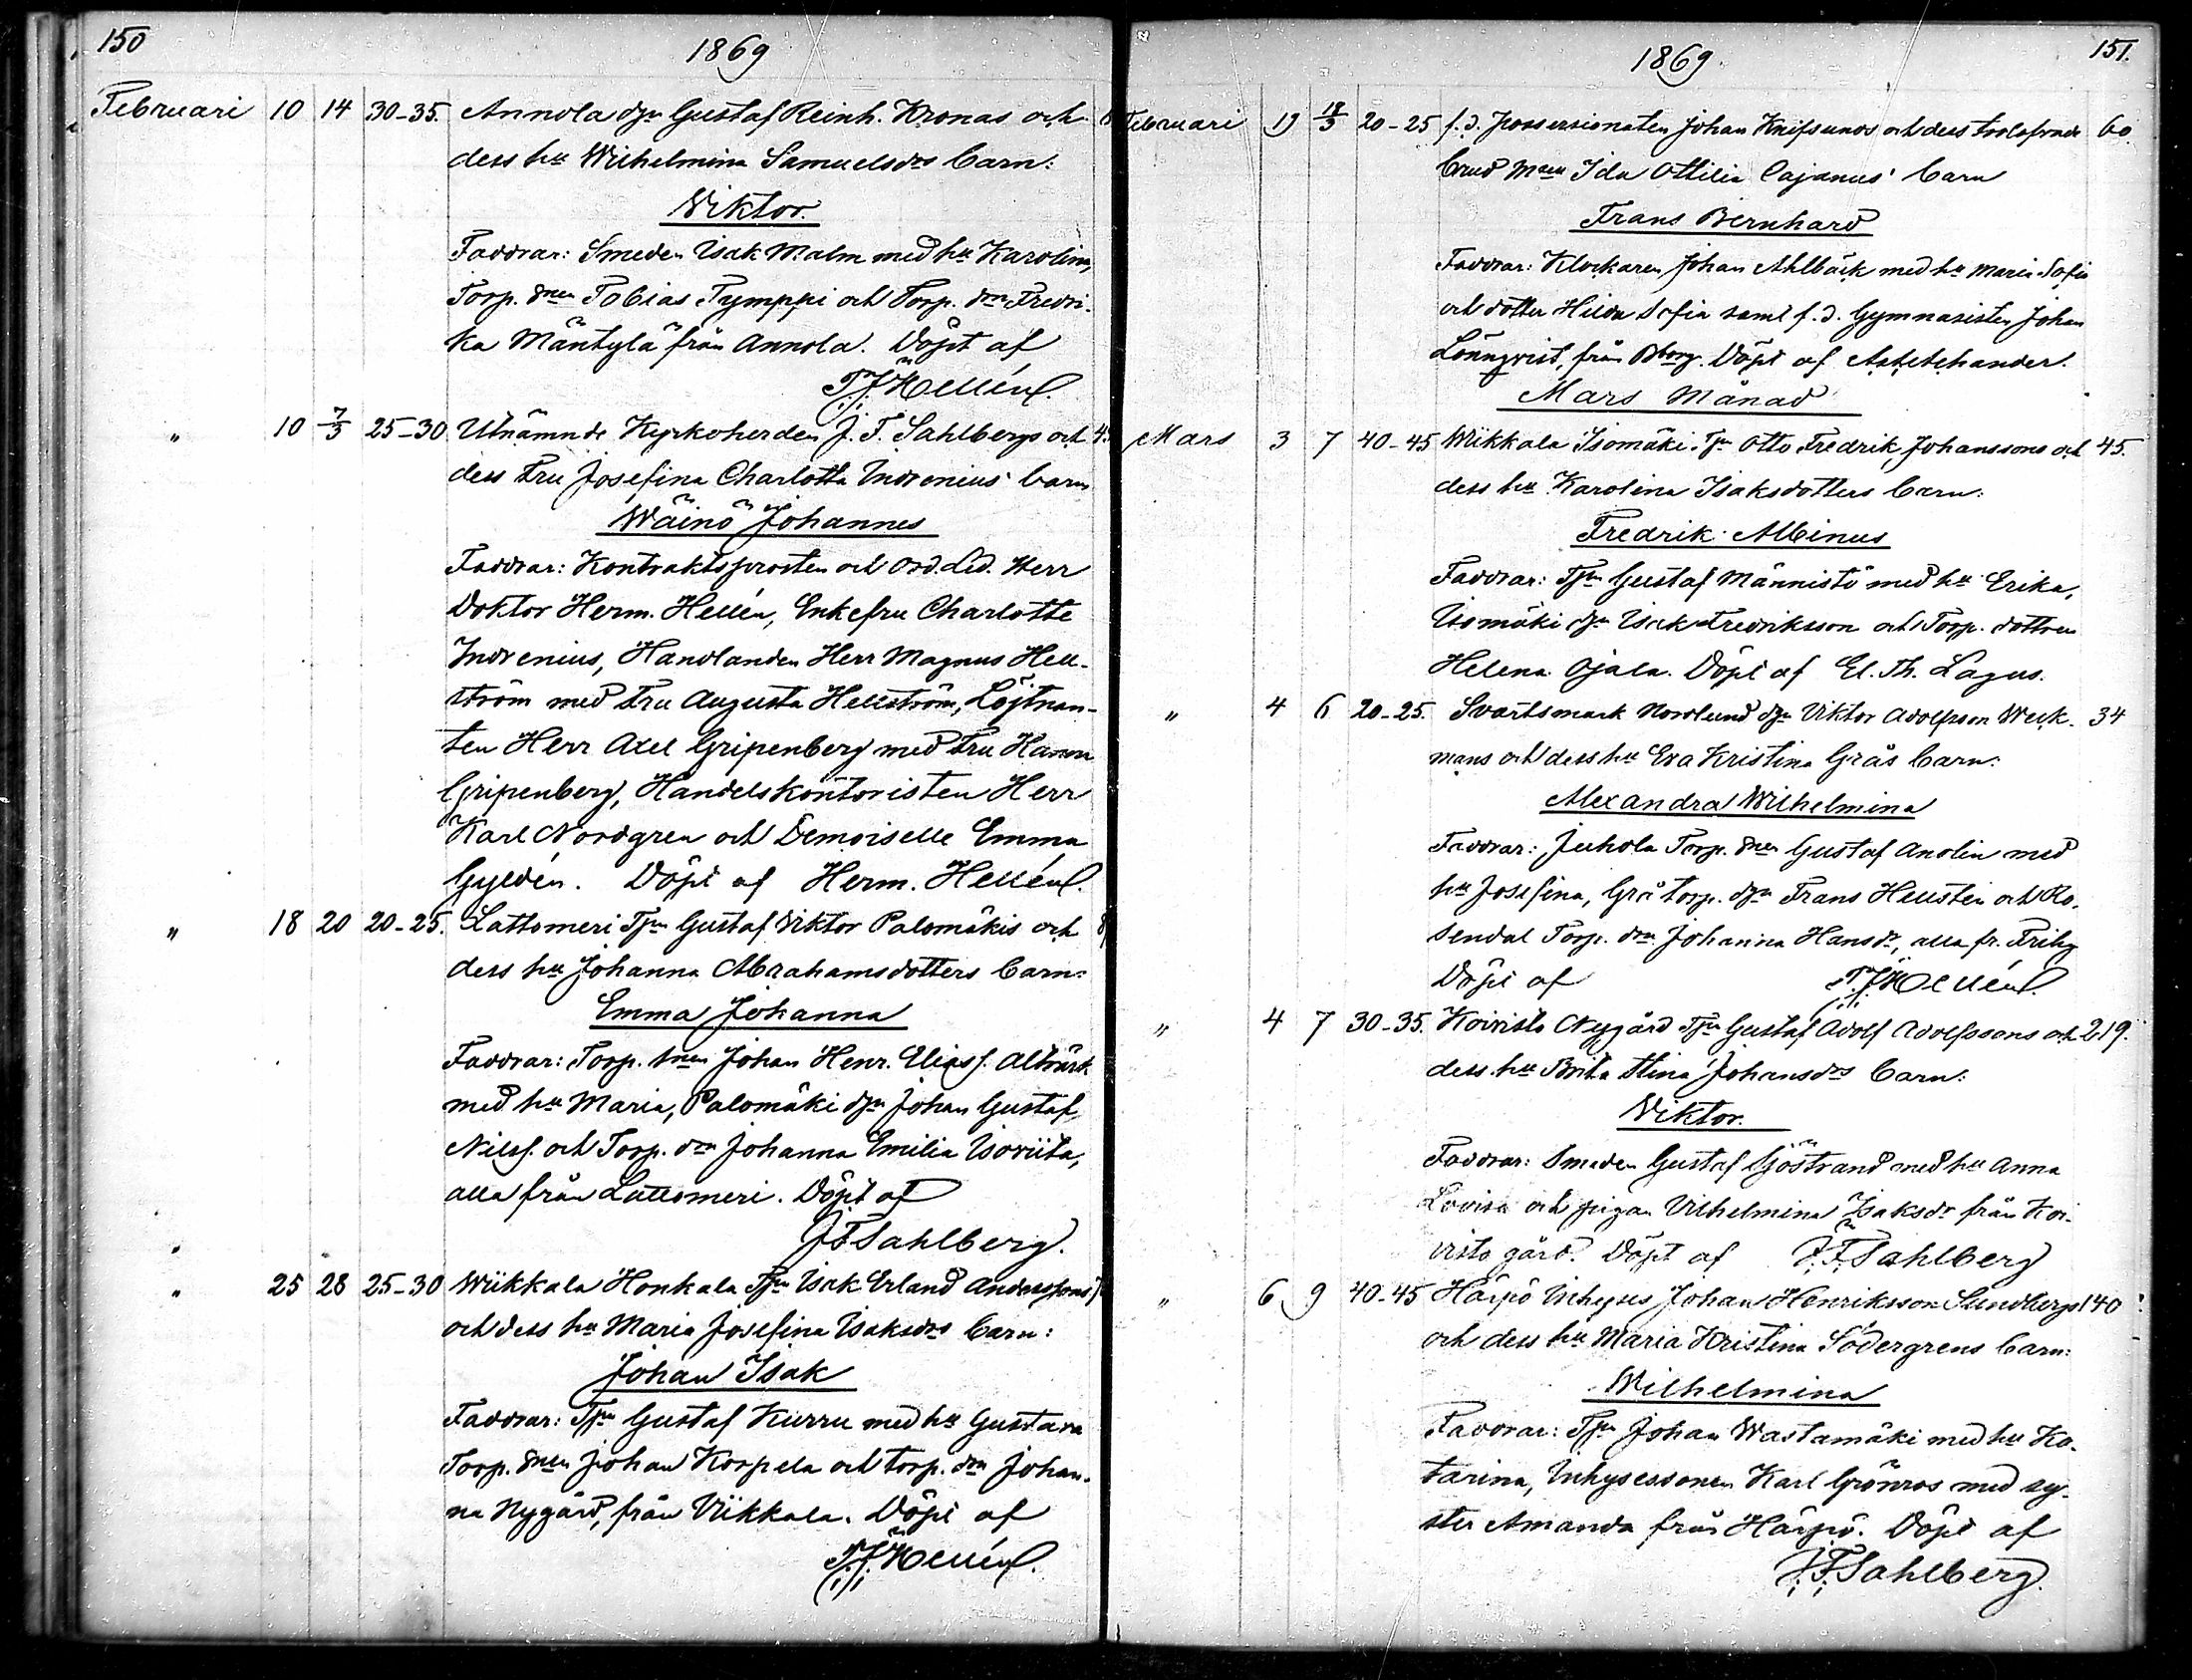 150
1869
Februari 10 14 30-35. Annola dr. Gustaf Reinh. Kronas och
dess hu Wilhelmina Samuelsdrs barn:
Viktor.
Faddrar: Smeden Isak Malm med hu Karolina,
Torp. Tobias Tymppi och Torp. drn Fredri-
ka Mäntylä från Annola. Döpt af
Hellén.
" 10 7/3 25-30 Utnämnde Kyrkoherden J. F. Sahlbergs och
dess Fru Josefina Charlotta Indrenius' barn
Wäinö Johannes
Faddrar: Kontraktsprosten och Ord. Led. Herr
Doktor Herm. Hellén, Enkefru Charlotte
Indrenius, Handlanden Herr Magnus Hell-
ström med Fru Augusta Hellström, Löjtnan-
ten Herr Axel Gripenberg med Fru Hanna
Gripenberg, Handelskontoristen Herr
Karl Nordgren och Demoiselle Emma
Gyldén. Döpt af Herm. Hellén.
" 18 20 20-25. Lattomeri Gustaf Viktor Palomäkis och
dess hu Johanna Abrahamsdotters barn:
Emma Johanna
Faddrar: Torp. Johan Henr. Eliass.
med hu Maria, Palomäki Johan Gustaf
Nilss. och Torp. drn Johanna Emilia Isoviita,
alla från Lattomeri. Döpt af
J F Sahlberg.
" 25 28 25-30 Wiikkala Honkala Isak Erland Anderssons
och dess hu Maria Josefina Isaksdrs barn:
Johan Isak
Faddrar: Gustaf Kurru med hu Gustava
Torp. Johan Korpela och torp. drn Johan-
na Nygård, från Viikkala. Döpt af
Hellén.
151.
1869.
Februari 19 18/3 20-25 f.d. possessionaten Johan Knifsunds och dess trolofvade 60.
brud Ida Ottilia Cajanus' barn
Frans Bernhard
Faddrar: Klockaren Johan Ahlbäck med hu Maria Sofia
och dotter Hilda Sofia samt f.d. Gymnasisten Johan
Lönnqvist, från Bborg. Döpt af
Mars Månad
Mars 3 7 40-45 Wiikkala Isomäki Otto Fredrik Johanssons och 45.
dess hu Karolina Isaksdotters barn:
Fredrik Albinus
Faddrar: Gustaf Männistö med hu Erika,
Isomäki Isak Fredriksson och Torp. dottren
Helena Ojala. Döpt af El. Th. Lagus.
" 4 6 20-25. Svartsmark Nordlund Viktor Adolfsson Weck- 34
mans och dess hu Eva Kristina Grås barn:
Alexandra Wilhelmina
Faddrar: Juhola Torp. Gustaf Anolin med
hu Josefina, Grå torp. Frans Hellsten och Ro-
sendal Torp. drn Johanna Hansdr, alla fr.
Döpt af Hellén.
" 4 7 30-35. Koivisto Nygård Gustaf Adolf Adolfssons och 219.
dess hu Brita Stina Johansdrs barn:
Viktor.
Faddrar: Smeden Gustaf Sjöstrand med hu Anna
Lovisa och pigan Vilhelmina Isaksdr från Koi-
visto gård. Döpt af J. F. Sahlberg
" 6 9 40-45 Härpö Inhyses Johan Henriksson Sundbergs 140
och dess hu Maria Kristina Södergrens barn:
Wilhelmina
Faddrar: Johan Wastamäki med hu Ka-
tarina, Inhysessonen Karl Grönros med sy-
ster Amanda från Härpö. Döpt af
J. F. Sahlberg.